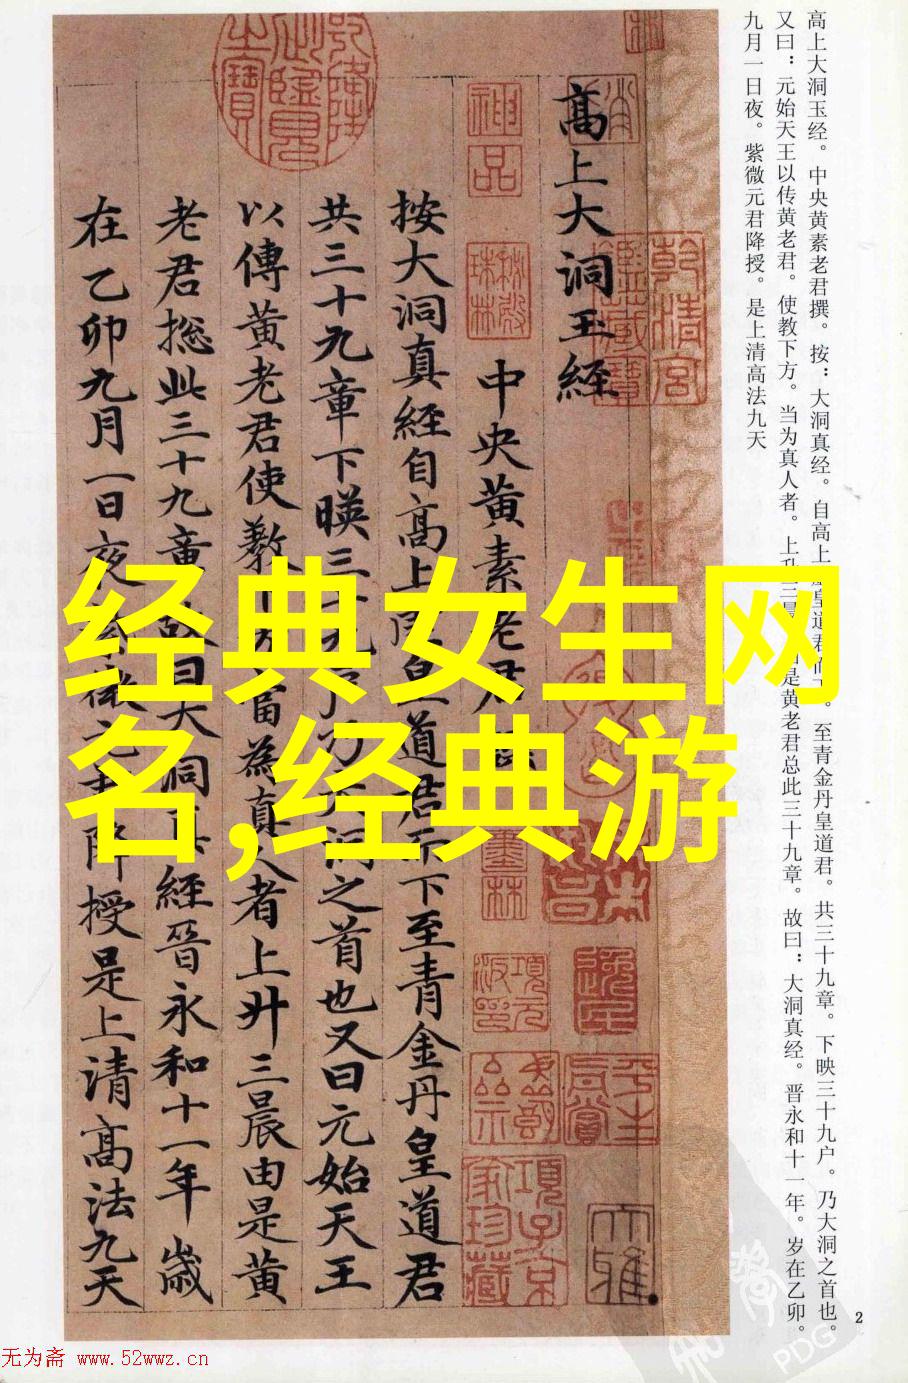 高上大洞玉經
中央黄素老君
按大洞真經自高上皇道君而下至青金丹皇道君
共三十九章下暎三十九户乃大洞之首也又曰元始天王
以傳黄老君使教下方當為真人者上升三晨由是黄
老君摠此三十九章故曰大洞真經晉永和十一年歲
在乙卯九月一日夜紫微元君降授是上清高法九天
高上大洞玉经。中央黄素老君撰。按：大洞真经。自高上皇道君而下。至青金丹皇道君。共三十九章。下映三十九户。乃大洞之首也。
又曰：元始天王以传黄老君。使教下方。当为真人者。上升三晨。由是黄老君总此三十九章。故曰：大洞真经。晋永和十一年。岁在乙卯。
九月一日夜。紫微元君降授。是上清高法九天
经典女生网
名,经典游
神品
乾清宫鑑藏寶
項子京家珍藏
2
无为斋 www.52wwz.cn
PDG